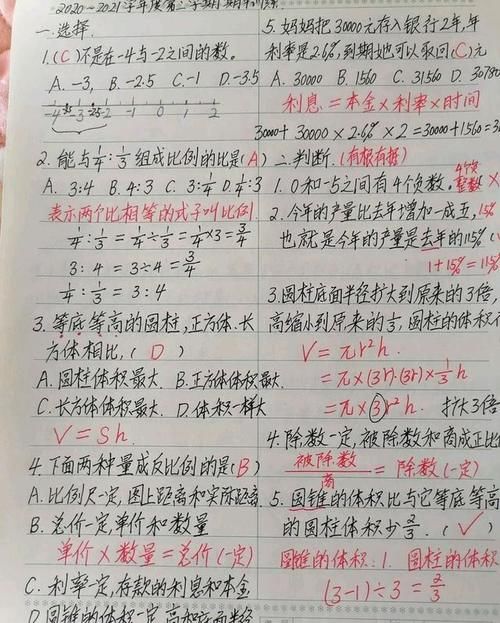 2020~2021学年度第二学期期中训练
一.选择.
1.(C)不是在-4与-2之间的数。
A. -3, B. -2.5 C. -1 D. -3.5
-4 -3.5 -3 -2.5 -2 -1 0 1 2
2. 能与1/4:1/3组成比例的比是(A)
A. 3:4 B. 4:3 C. 3:1/4 D. 1/4:3
表示两个比相等的式子叫比例.
1/4:1/3 = 1/4÷1/3 = 1/4×3 = 3/4
3:4 = 3÷4 = 3/4
1/4:1/3 = 3:4
3. 等底等高的圆柱,正方体.长
方体相比,( D )
A. 圆柱体积最大. B. 正方体体积最大.
C. 长方体体积最大. D. 体积一样大
V = Sh
4. 下面两种量成反比例的是(B)
A. 比例尺一定,图上距离和实际距离.
B. 总价一定,单价和数量
单价×数量=总价(一定)
C. 利率一定,存款的利息和本金
D. 圆锥的体积一定,高和底面半径
5. 妈妈把30000元存入银行2年,年
利率是2.6%,到期她可以取回(C)元
A. 30000 B. 1560 C. 31560 D. 30780
利息=本金×利率×时间
30000+30000×2.6%×2=30000+1560=3
二.判断.(有根有据)
1. 0和-5之间有4个负数. ×
4个负整数
2. 今年的产量比去年增加一成五,
15%
也就是今年的产量是去年的115%(
1+15%=115%
3.圆柱底面半径扩大到原来的3倍,
高缩小到原来的1/3,圆柱的体积
V=πr²h.
=π×(3r)·(3r)×1/3h
=π×③r²h. 扩大3倍
4. 除数一定,被除数和商成正比
被除数/商 = 除数(一定)
5. 圆锥的体积比与它等底等高
的圆柱体积少2/3. (√)
圆锥的体积:1. 圆柱的体积
(3-1)÷3=2/3